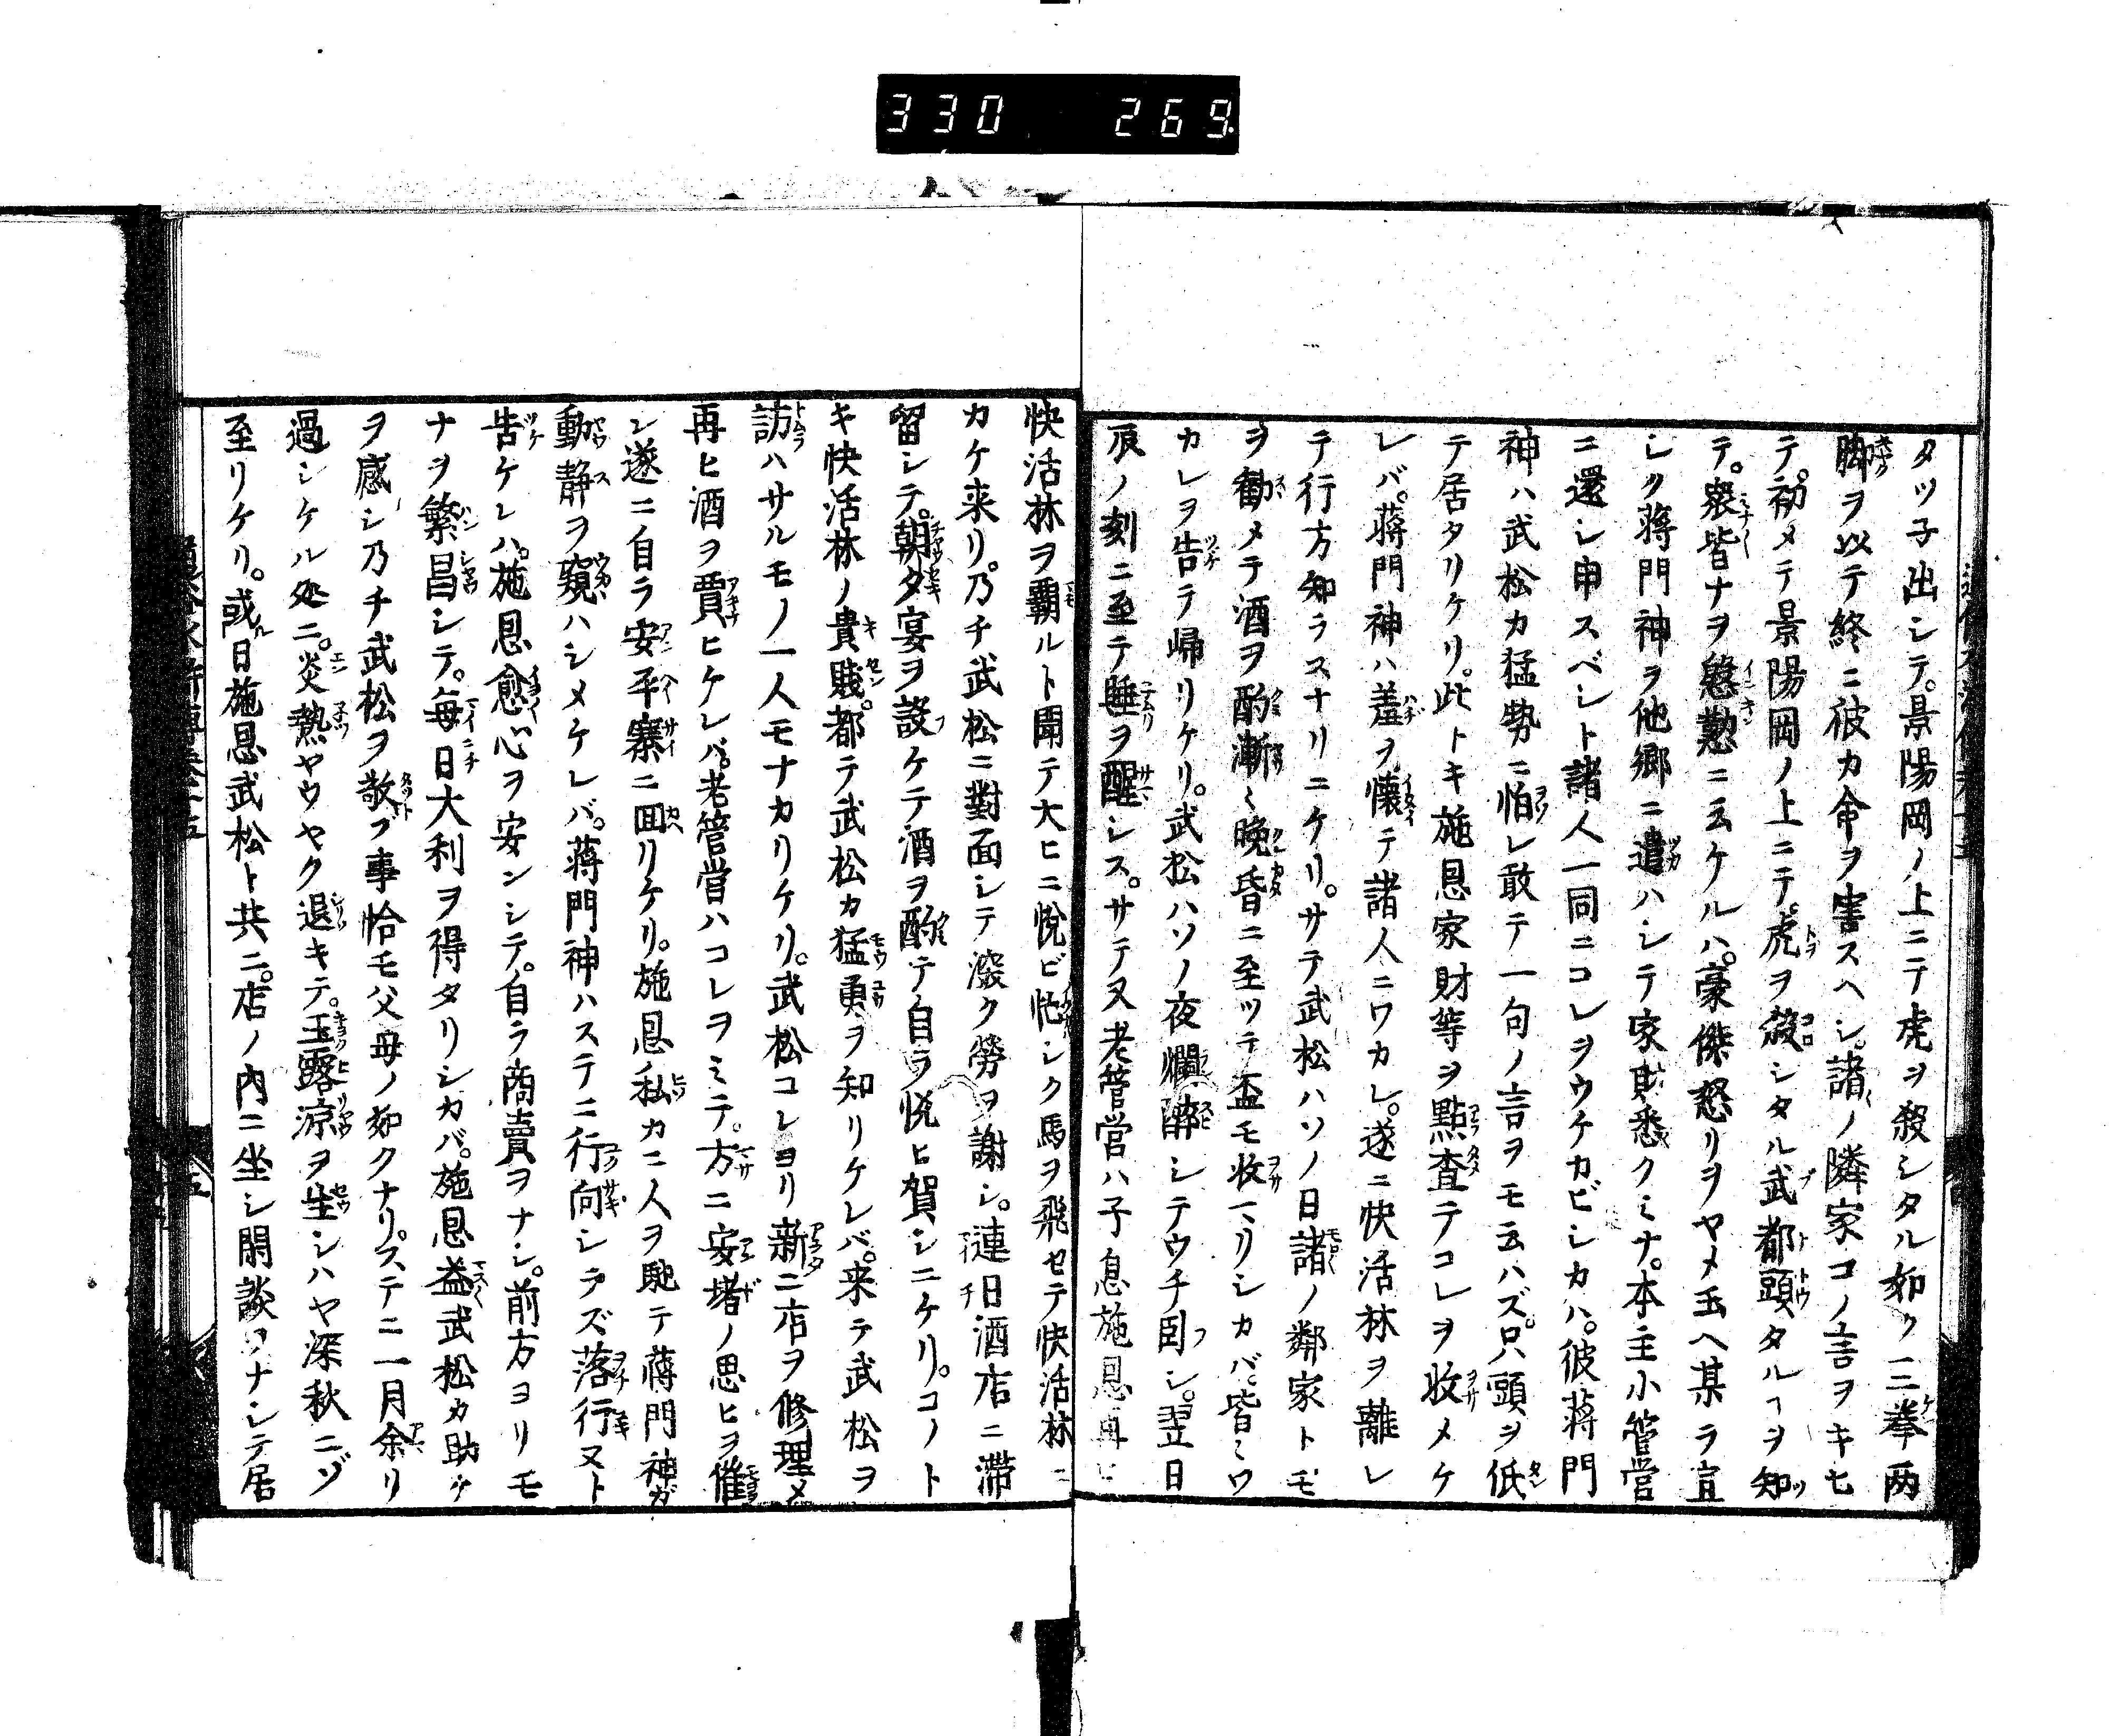 330 269
タツ子出シテ。景陽岡ノ上ニテ虎ヲ殺シタル如ク三拳両
脚ヲ以テ終ニ彼カ命ヲ害スヘシ。諸ノ隣家コノ言ヲキヒ
テ。初メテ景陽岡ノ上ニテ。虎ヲ殺シタル武都頭タルヿヲ知
テ。衆皆ナヲ慇懃ニ云ケルハ。豪傑怒リヲヤメ玉ヘ某ラ宜
シク蒋門神ヲ他郷ニ遣ハシテ家財悉クミナ。本主小管営
ニ還シ申スベシト諸人一同ニコレヲウケカビシカハ。彼蒋門
神ハ武松カ猛勢ニ怕レ敢テ一句ノ言ヲモ云ハズ。只頭ヲ低
テ居タリケリ。此トキ施恩家財等ヲ點査テコレヲ收メケ
レバ。蒋門神ハ羞ヲ懐テ諸人ニワカレ。遂ニ快活林ヲ離レ
テ行方知ラスナリニケリ。サテ武松ハソノ日諸ノ鄰家トモ
ヲ勧メテ酒ヲ酌漸ミ晩昏ニ至ツテ盃モ收マリシカバ。皆ミワ
カレヲ告テ帰リケリ。武松ハソノ夜爛酔シテウチ臥シ。翌日
辰ノ刻ニ至テ睡ヲ醒シス。サテ又老管営ハ子息施恩再ヒ
快活林ヲ覇ルト聞テ大ヒニ悦ビ忙シク馬ヲ飛セテ快活林ニ
カケ来リ。乃チ武松ニ對面シテ深ク勞ヲ謝シ。連日酒店ニ滞
留シテ。朝夕宴ヲ設ケテ酒ヲ酌テ自ラ悦ヒ賀シニケリ。コノト
キ快活林ノ貴賎。都テ武松カ猛勇ヲ知リケレバ。来テ武松ヲ
訪ハサルモノ一人モナカリケリ。武松コレヨリ新ニ店ヲ修理メ
再ヒ酒ヲ賈ヒケレバ。老管営ハコレヲミテ。方ニ安堵ノ思ヒヲ催
シ遂ニ自ラ安平寨ニ囬リケリ。施恩私カニ人ヲ馳テ蒋門神ガ
動静ヲ窺ハシメケレバ。蒋門神ハステニ行向シラズ落行ヌト
告ケレハ。施恩愈心ヲ安ンシテ。自ラ商賣ヲナシ。前方ヨリモ
ナヲ繁昌シテ。毎日大利ヲ得タリシカバ。施恩益武松カ助ケ
ヲ感シ乃チ武松ヲ敬フ事恰モ父母ノ如クナリ。ステニ一月余リ
過シケル処ニ。炎熱ヤウヤク退キテ。玉露凉ヲ生シハヤ深秋ニゾ
至リケリ。或日施恩武松ト共ニ。店ノ内ニ坐シ閑談ヲナシテ居